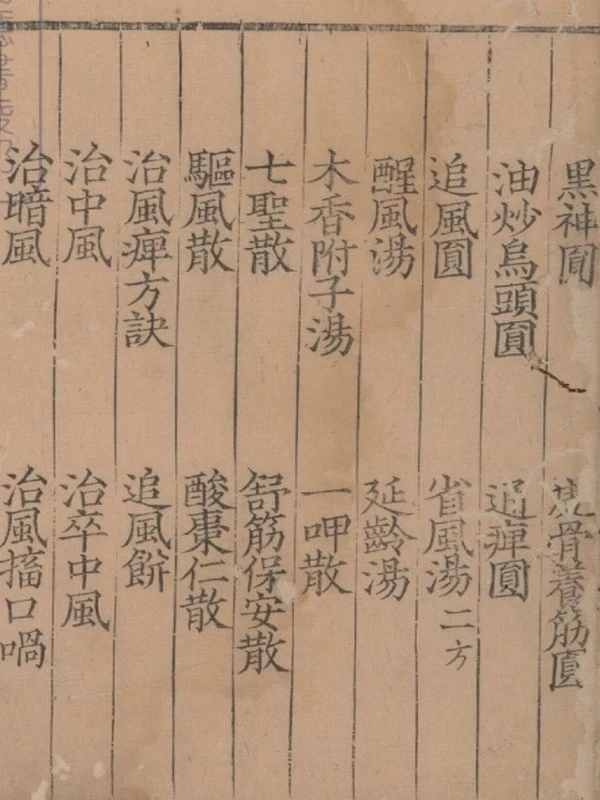 黑神圓 骨養筋圓
油炒烏頭圓 痺圓
追風圓 省風湯二方
醒風湯 延齡湯
木香附子湯 一呷散
七聖散 舒筋保安散
驅風散 酸棗仁散
治風痺方訣 追風餅
治中風 治卒中風
治暗風 治風搐口喎